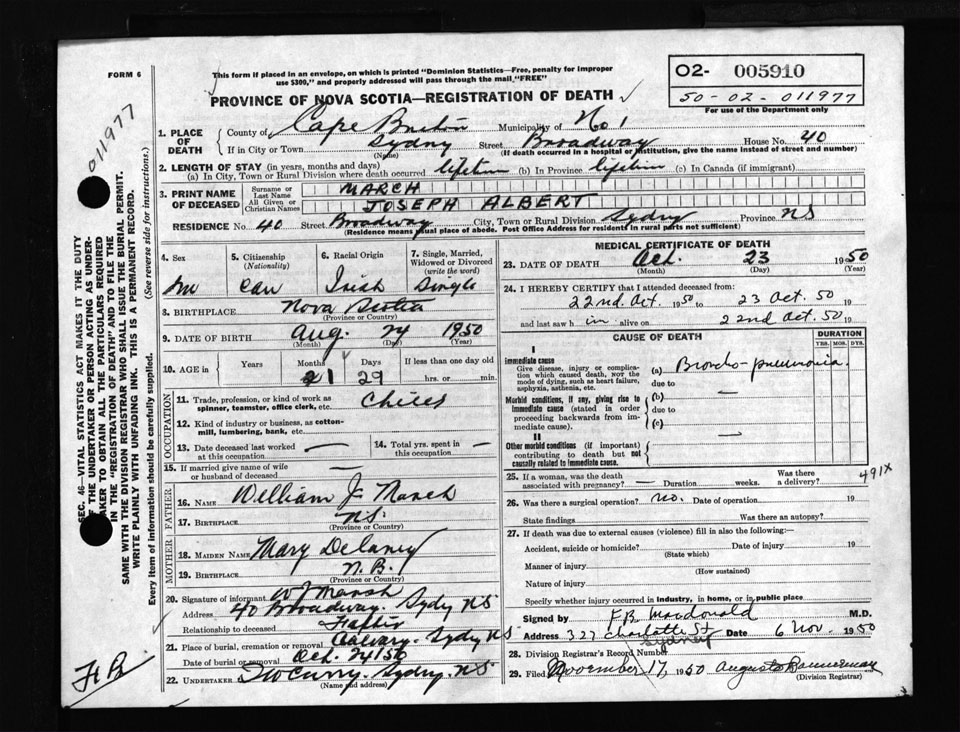 FORM 6
This form if placed in an envelope, on which is printed "Dominion Statistics—Free, penalty for improper
use $300," and properly addressed will pass through the mail "FREE"
O2- 005910
50-02-011977
For use of the Department only
PROVINCE OF NOVA SCOTIA—REGISTRATION OF DEATH
011977
1. PLACE OF DEATH
County of Cape Breton Municipality of No 1
If in City or Town Sydney Street Broadway House No. 40
(Name) (If death occurred in a hospital or institution, give the name instead of street and number)
2. LENGTH OF STAY (in years, months and days)
(a) In City, Town or Rural Division where death occurred lifetime (b) In Province lifetime (c) In Canada (if immigrant)
3. PRINT NAME OF DECEASED
Surname or Last Name MARCH
All Given or Christian Names JOSEPH ALBERT
RESIDENCE No. 40 Street Broadway City, Town or Rural Division Sydney Province NS
(Residence means usual place of abode. Post Office Address for residents in rural parts not sufficient)
4. Sex
m
5. Citizenship (Nationality)
can
6. Racial Origin
Irish
7. Single, Married, Widowed or Divorced (write the word)
Single
8. BIRTHPLACE Nova Scotia
(Province or Country)
9. DATE OF BIRTH Aug. 24 1950
(Month) (Day) (Year)
10. AGE in Years Months 1 Days 29 If less than one day old hrs. or min.
OCCUPATION
11. Trade, profession, or kind of work as spinner, teamster, office clerk, etc.
12. Kind of industry or business, as cotton-mill, lumbering, bank, etc.
13. Date deceased last worked at this occupation — 14. Total yrs. spent in this occupation —
15. If married give name of wife or husband of deceased —
FATHER
16. NAME William J. March
17. BIRTHPLACE NS.
(Province or Country)
MOTHER
18. MAIDEN NAME Mary Delaney
19. BIRTHPLACE N. B.
(Province or Country)
20. Signature of informant W J Marsh
Address 40 Broadway. Sydy NS
Relationship to deceased Father
21. Place of burial, cremation or removal Calvary. Sydy NS
Date of burial or removal Oct. 24/50
22. UNDERTAKER Curry. Sydy. NS
(Name and address)
MEDICAL CERTIFICATE OF DEATH
23. DATE OF DEATH Oct. 23 1950
(Month) (Day) (Year)
24. I HEREBY CERTIFY that I attended deceased from:
22nd Oct. 1950 to 23 Oct. 50 19
and last saw h im alive on 22nd Oct. 50 19
CAUSE OF DEATH
DURATION
YRS. MOS. DYS.
I
Immediate cause
Give disease, injury or complication which caused death, not the mode of dying, such as heart failure, asphyxia, asthenia, etc.
(a) Broncho-pneumonia.
due to
Morbid conditions, if any, giving rise to immediate cause (stated in order proceeding backwards from immediate cause).
(b) —
due to
(c)
II
Other morbid conditions (if important) contributing to death but not causally related to immediate cause.
—
491X
25. If a woman, was the death associated with pregnancy? — Duration weeks. Was there a delivery?
26. Was there a surgical operation? no. Date of operation 19
State findings Was there an autopsy?
27. If death was due to external causes (violence) fill in also the following:
Accident, suicide or homicide? Date of injury 19
(State which)
Manner of injury
(How sustained)
Nature of injury
Specify whether injury occurred in industry, in home, or in public place
Signed by F.B. Macdonald M.D.
Address 327 Charlotte St Sydney Date 6 Nov. 1950
28. Division Registrar's Record Number
29. Filed November 17, 1950 Augusta Bannerman
(Division Registrar)
SEC. 46—VITAL STATISTICS ACT MAKES IT THE DUTY
OF THE UNDERTAKER OR PERSON ACTING AS UNDER-
TAKER TO OBTAIN ALL THE PARTICULARS REQUIRED
IN THE "REGISTRATION OF DEATH" AND TO FILE THE
SAME WITH THE DIVISION REGISTRAR WHO SHALL ISSUE THE BURIAL PERMIT.
WRITE PLAINLY WITH UNFADING INK. THIS IS A PERMANENT RECORD.
Every item of information should be carefully supplied. (See reverse side for instructions.)